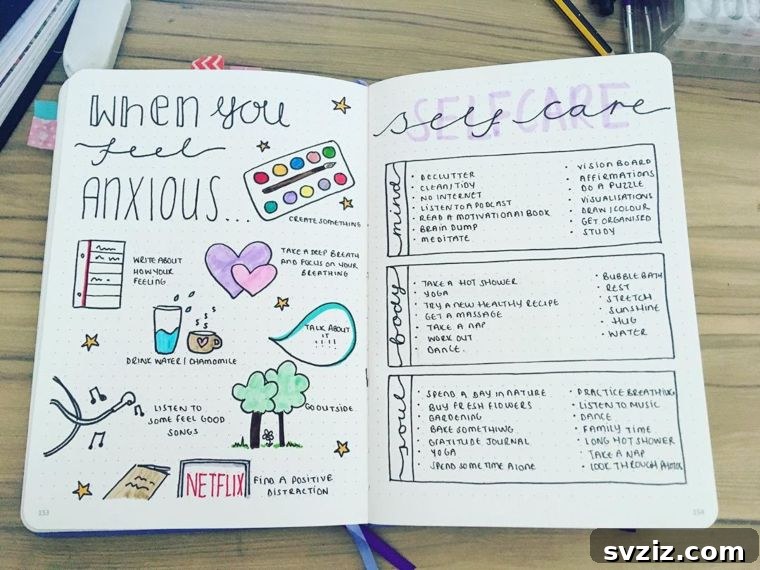 When you
feel
ANXIOUS...
CREATE SOMETHING
WRITE ABOUT
HOW YOUR
FEELING
TAKE A DEEP BREATH
AND FOCUS ON YOUR
BREATHING
DRINK WATER / CHAMOMILE
TALK ABOUT
IT
!!!!
LISTEN TO
SOME FEEL GOOD
SONGS
GO OUTSIDE
NETFLIX
FIND A POSITIVE
DISTRACTION
153
SELFCARE
self care
mind
• DECLUTTER
• CLEAN/TIDY
• NO INTERNET
• LISTEN TO A PODCAST
• READ A MOTIVATIONAL BOOK
• BRAIN DUMP
• MEDITATE
• VISION BOARD
• AFFIRMATIONS
• DO A PUZZLE
• VISUALISATIONS
• DRAW/COLOUR
• GET ORGANISED
• STUDY
body
• TAKE A HOT SHOWER
• YOGA
• TRY A NEW HEALTHY RECIPE
• GET A MASSAGE
• TAKE A NAP
• WORK OUT
• DANCE.
• BUBBLE BATH
• REST
• STRETCH
• SUNSHINE
• HUG
• WATER
soul
• SPEND A DAY IN NATURE
• BUY FRESH FLOWERS
• GARDENING
• BAKE SOMETHING
• GRATITUDE JOURNAL
• YOGA
• SPEND SOME TIME ALONE
• PRACTICE BREATHING
• LISTEN TO MUSIC
• DANCE
• FAMILY TIME
• LONG HOT SHOWER
• TAKE A NAP
• LOOK THROUGH PHOTOS
154
svziz.com